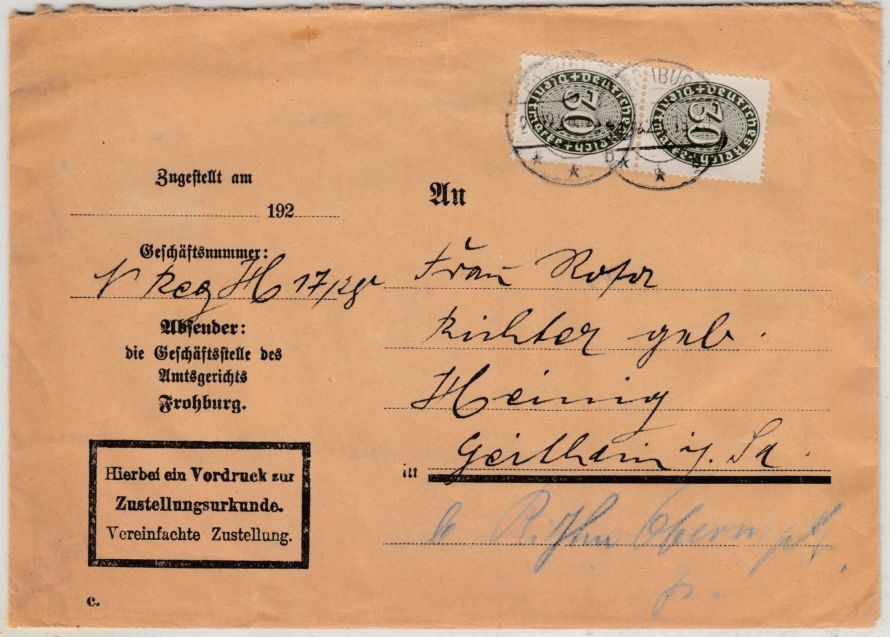 30
Deutsches Reich
Dienstmarke
30
Deutsches Reich
Dienstmarke
Zugestellt am
192
Geschäftsnummer:
V Reg H 17/29
Absender:
die Geschäftsstelle des
Amtsgerichts
Frohburg.
Hierbei ein Vordruck zur
Zustellungsurkunde.
Vereinfachte Zustellung.
c.
An
Frau Rosa
Richter geb.
Heinig
in Geithain i. Sa.